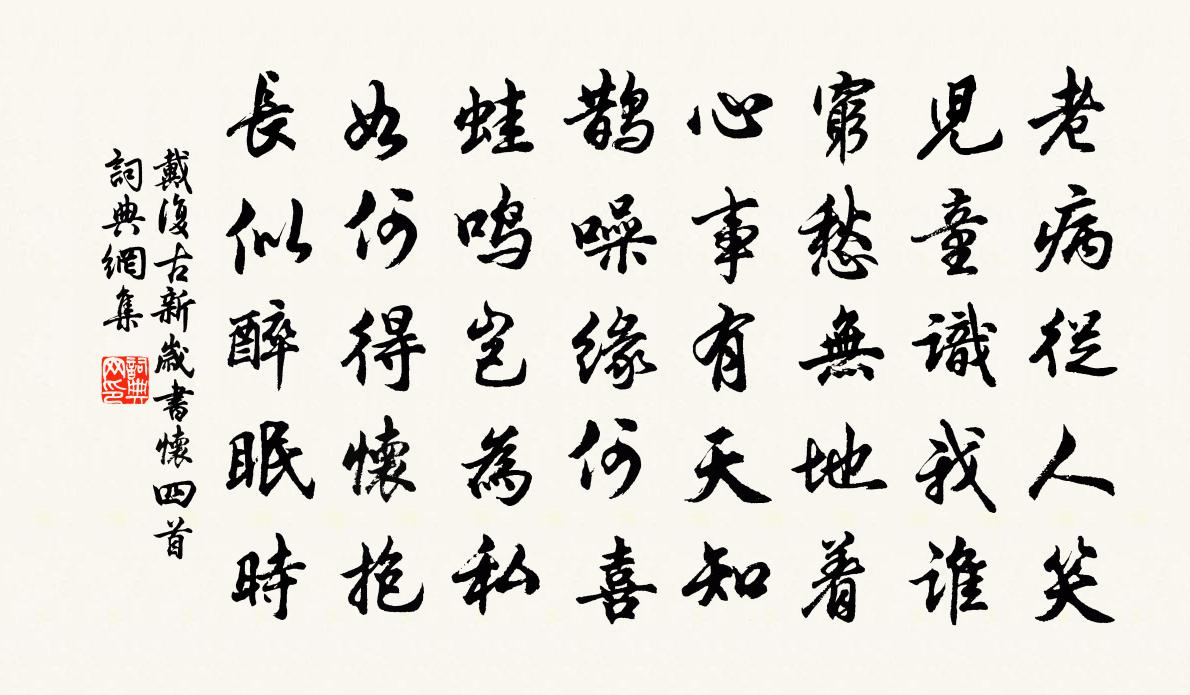 老病從人笑
兒童識我誰
窮愁無地着
心事有天知
鵲噪緣何喜
蛙鳴豈為私
如何得懷抱
長似醉眠時
戴復古新歲書懷四首
詞典網集
詞典网印